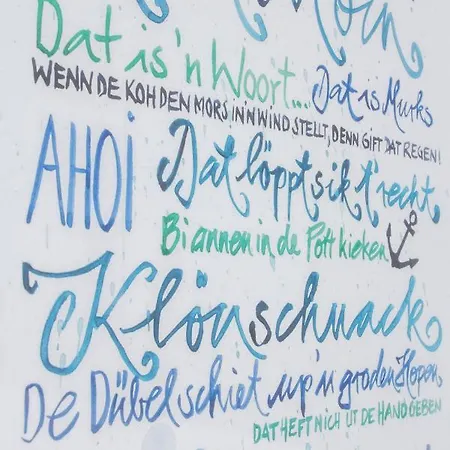 Dat is 'n Woort....
Dat is Murks
WENN DE KOH DEN MORS IN'N WIND STELLT, DENN GIFT DAT REGEN!
AHOI
Dat löppt sik t'recht
Bi annern in de Pott kieken
Klönschnack
De Dübel schiet up'n groden Hopen
DAT HEFT NICH UT DE HAND GEBEN